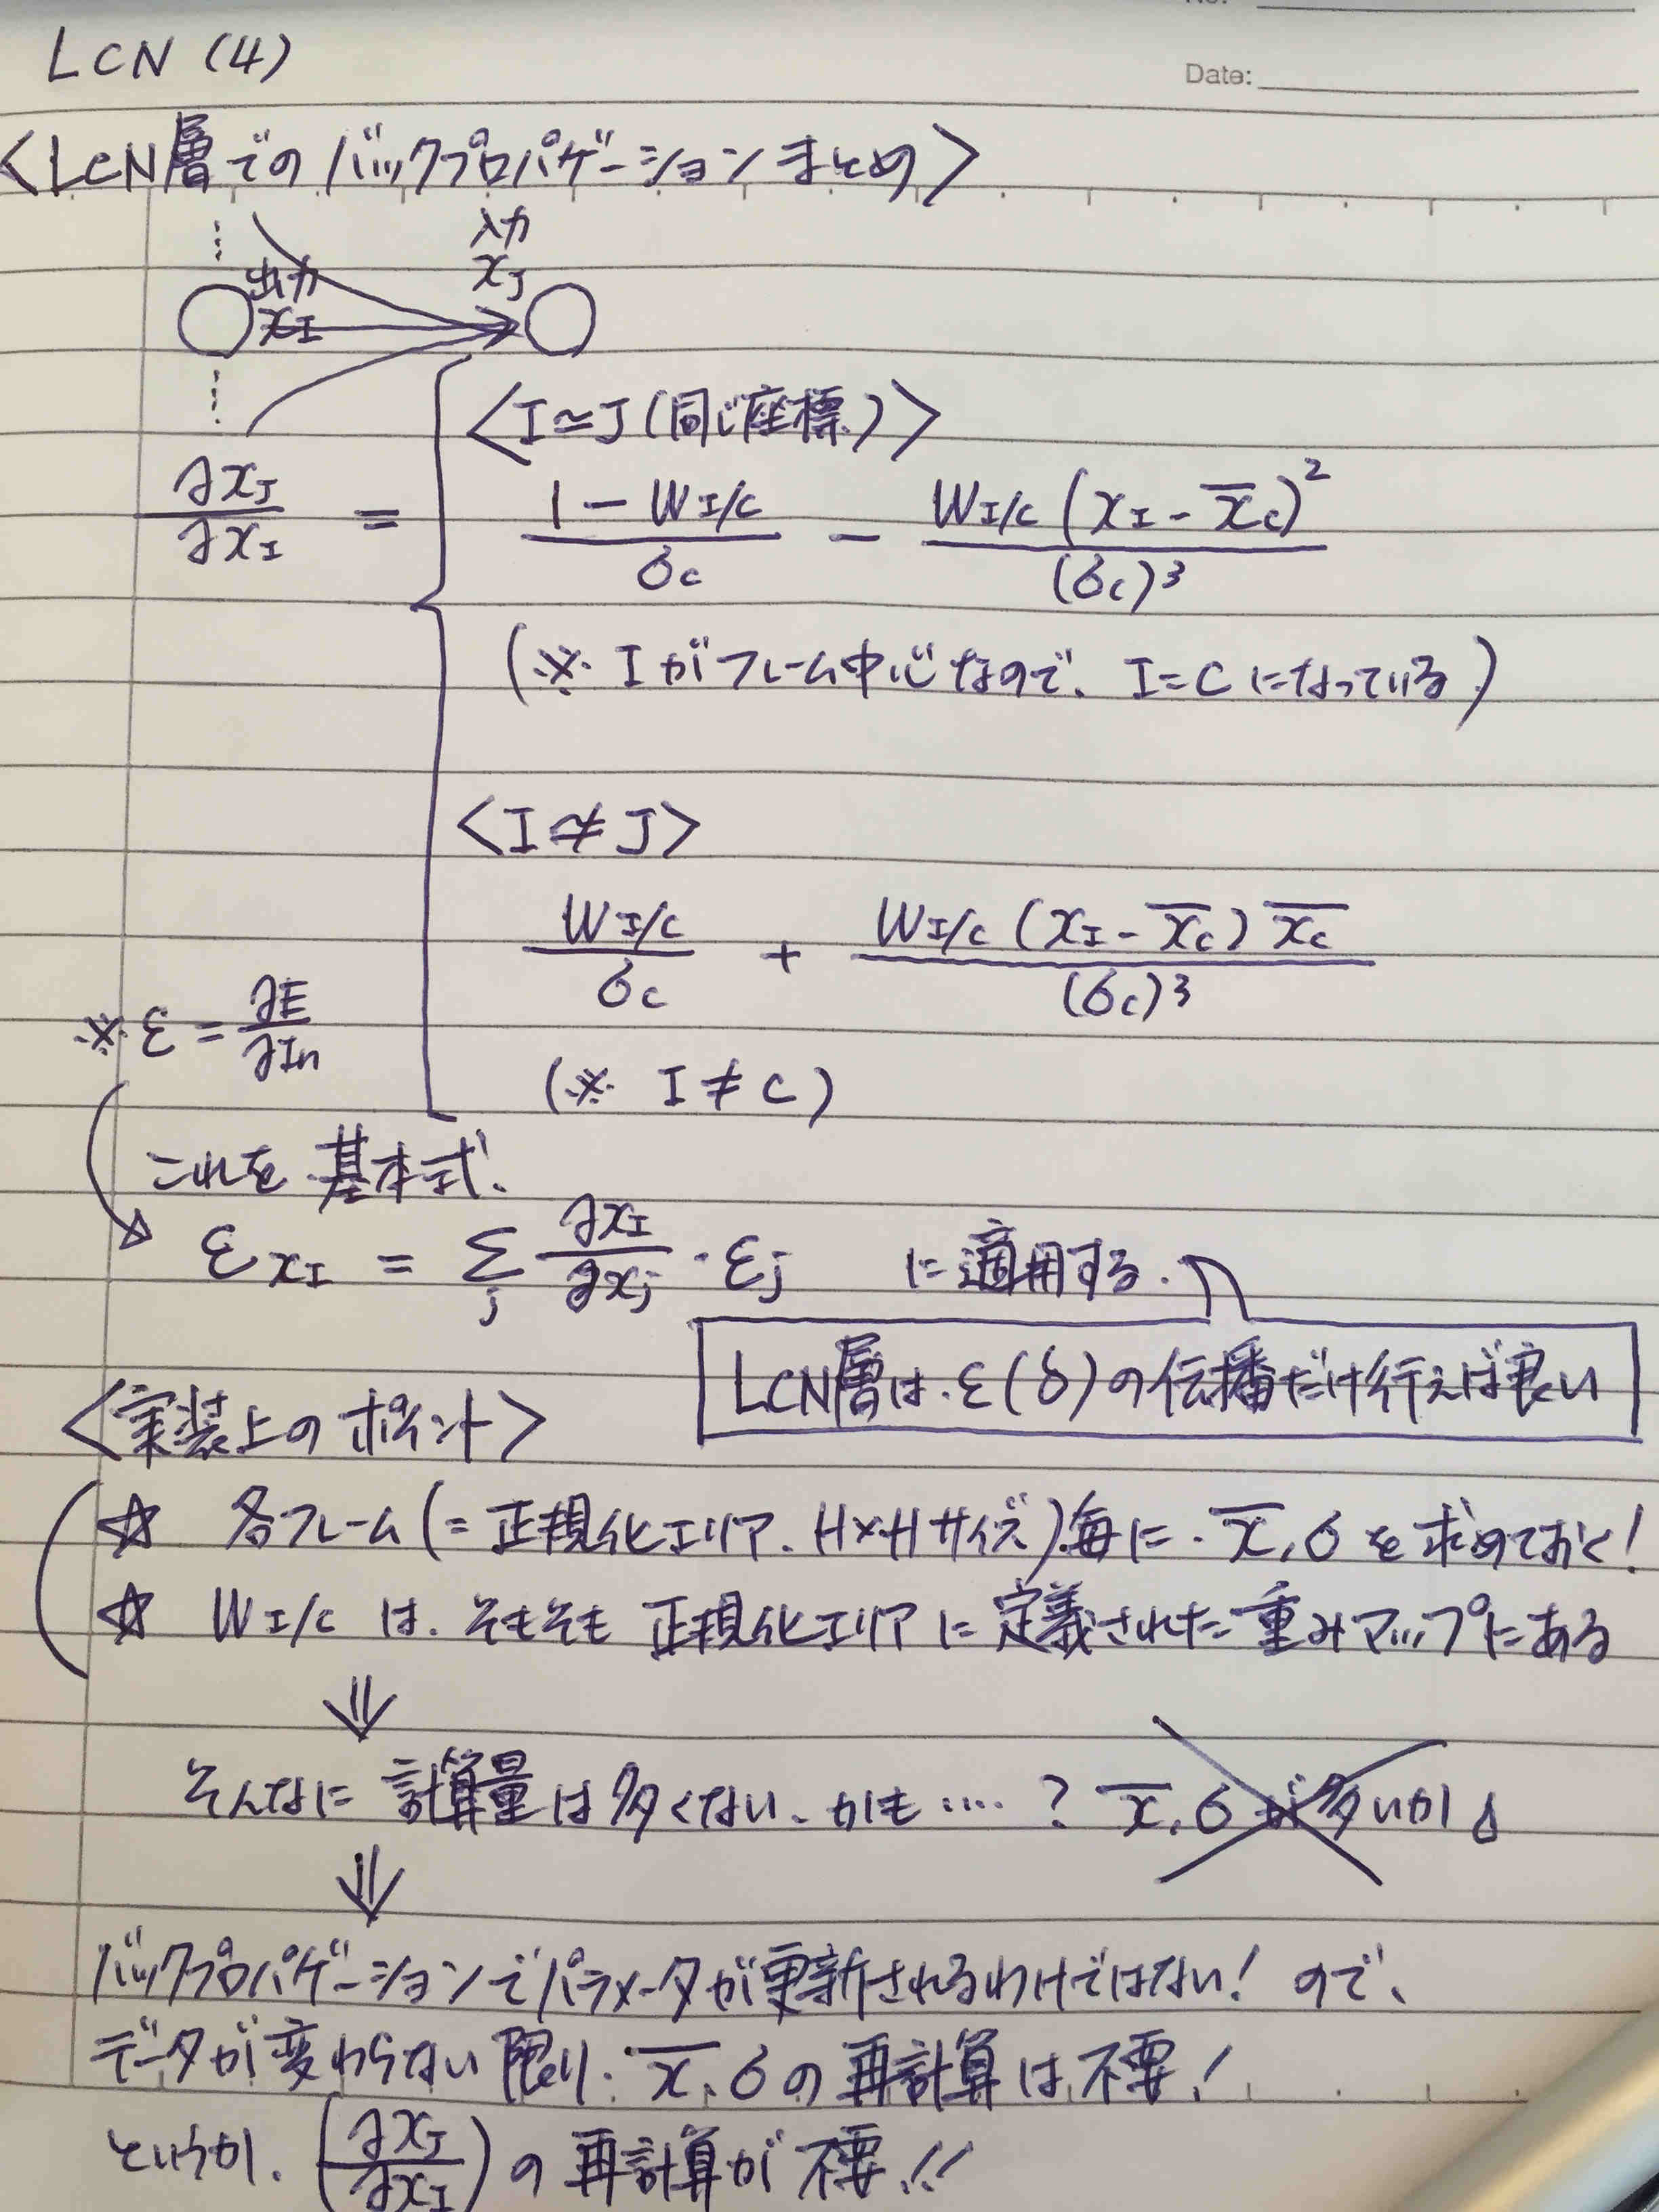 No.
Date:
LCN (4)
<LCN層でのバックプロパゲーションまとめ>
入力
出力 x_J
x_I
<I≃J(同じ座標)>
∂x_J/∂x_I = (1 - W_I/c)/σ_c - W_I/c (x_I - x̄_c)²/(σ_c)³
(※ Iがフレーム中心なので、I=Cになっている)
<I≄J>
W_I/c/σ_c + W_I/c (x_I - x̄_c) x̄_c/(σ_c)³
※ε = ∂E/∂In
(※ I≠C)
これを基本式、
ε_x_I = Σ_j ∂x_I/∂x_j・ε_j に適用する.
LCN層は.ε(δ)の伝播だけ行えば良い
<実装上のポイント>
☆ 各フレーム(=正規化エリア. H×Hサイズ)毎に.x̄, σを求めておく!
☆ W_I/c は.そもそも正規化エリアに定義された重みマップにある
⇓
そんなに計算量は多くない、かも‥‥? x̄, σが多いか
⇓
バックプロパゲーションでパラメータが更新されるわけではない! ので、
データが変わらない限り.x̄, σの再計算は不要!
というか、(∂x_J/∂x_I)の再計算が不要!!